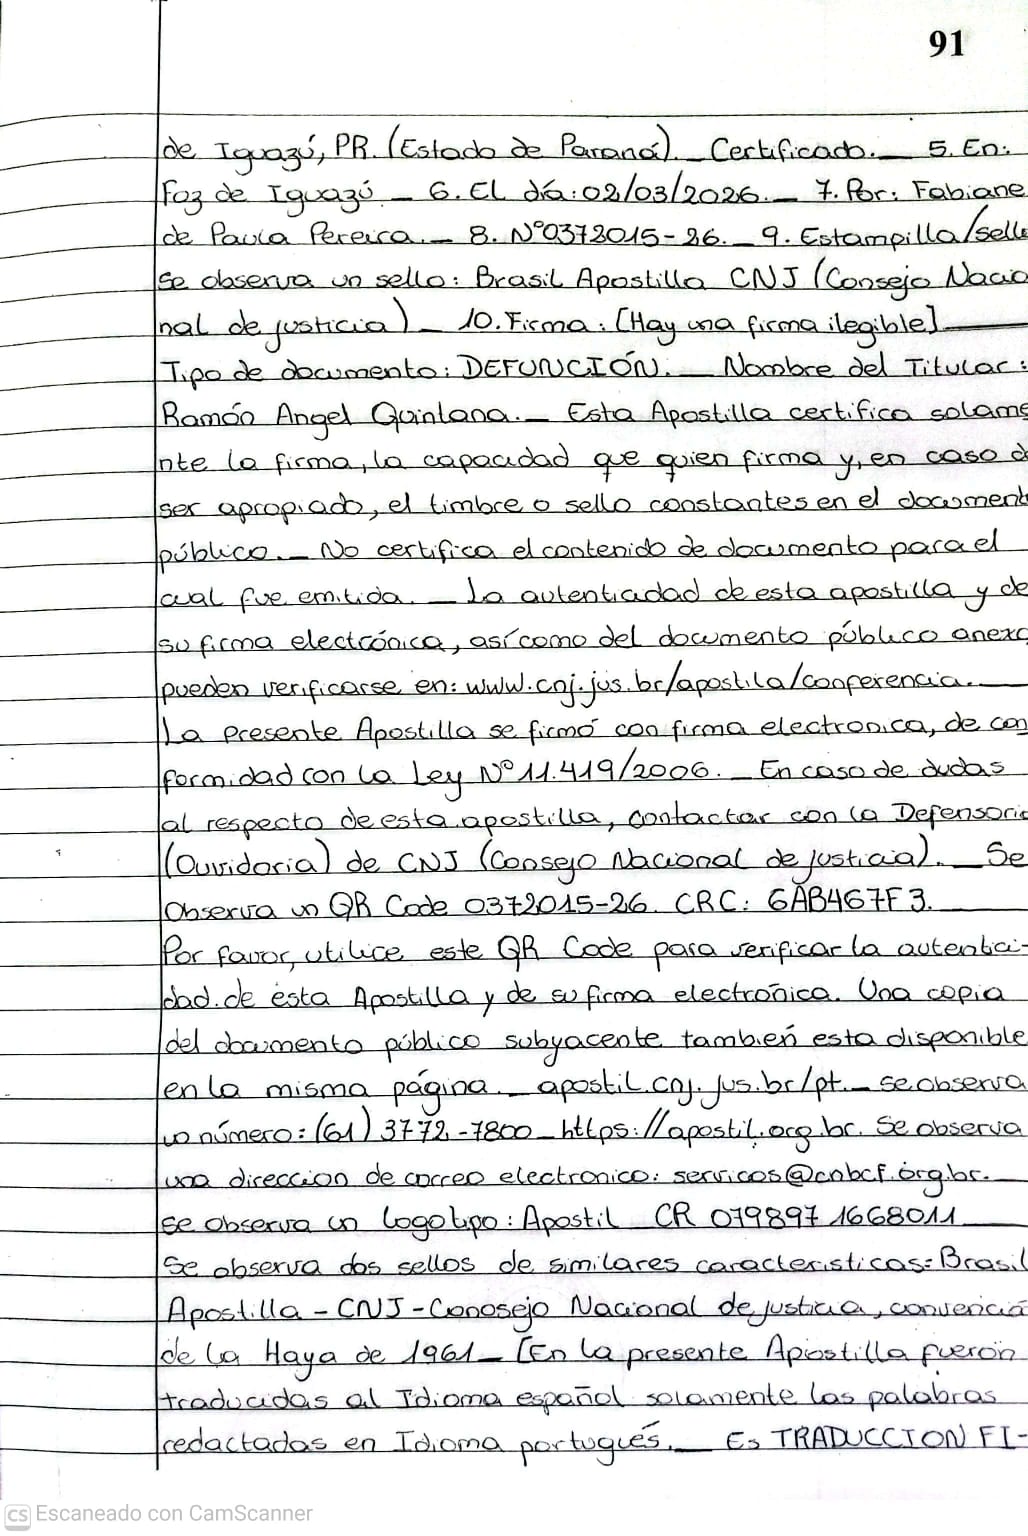 91
de Iguazú, PR. (Estado de Paraná). _ Certificado. _ 5. En:
Foz de Iguazú _ 6. El día: 02/03/2026. _ 7. Por: Fabiane
de Paula Pereira. _ 8. Nº0372015-26. _ 9. Estampilla/sello
Se observa un sello: Brasil Apostilla CNJ (Consejo Nacio
nal de justicia) _ 10. Firma: [Hay una firma ilegible]
Tipo de documento: DEFUNCIÓN. _ Nombre del Titular:
Ramón Angel Quintana. _ Esta Apostilla certifica solame
nte la firma, la capacidad que quien firma y, en caso d
ser apropiado, el timbre o sello constantes en el document
público. _ No certifica el contenido de documento para el
cual fue emitida. _ La autenticidad de esta apostilla y de
su firma electrónica, así como del documento público anexo
pueden verificarse en: www.cnj.jus.br/apostila/conferencia.
La presente Apostilla se firmó con firma electronica, de con
formidad con la Ley Nº 11.419/2006. _ En caso de dudas
al respecto de esta apostilla, contactar con la Defensoria
(Ouvidoria) de CNJ (Consejo Nacional de justicia). _ Se
Observa un QR Code 0372015-26. CRC: 6AB467F3.
Por favor, utilice este QR Code para verificar la autentici-
dad de esta Apostilla y de su firma electronica. Una copia
del documento público subyacente también esta disponible
en la misma página. _ apostil.cnj.jus.br/pt. _ se observa
un número: (61) 3772-7800 _ https://apostil.org.br. Se observa
una direccion de correo electronico: servicos@cnbcf.org.br.
se observa un logotipo: Apostil CR 079897 1668011
Se observa dos sellos de similares caracteristicas: Brasil
Apostilla - CNJ - Conosejo Nacional de justicia, convencia
de la Haya de 1961 _ [En la presente Apostilla fueron
traducidas al Idioma español solamente las palabras
redactadas en Idioma portugués. _ Es TRADUCCION FI-
CS Escaneado con CamScanner